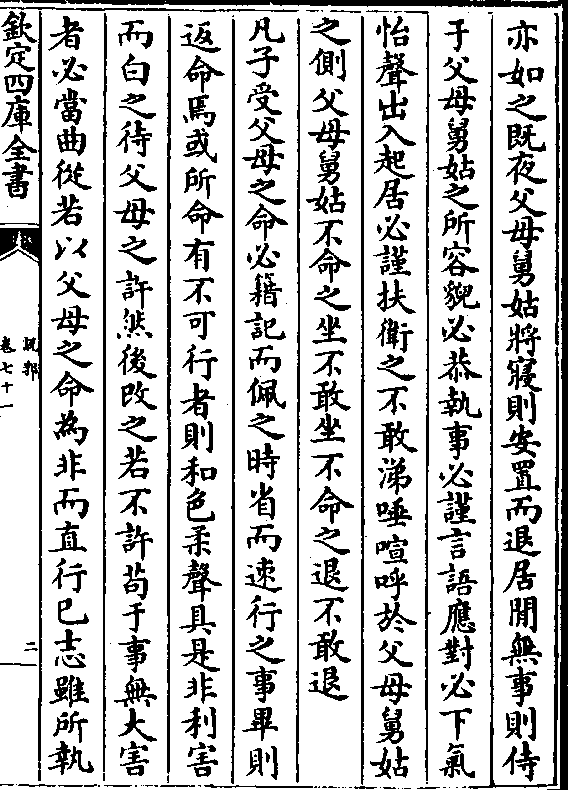 亦如之既夜父母舅姑將寢則安置而退居閒無事則侍
于父母舅姑之所容貌必恭執事必謹言語應對必下氣
怡聲出入起居必謹扶衛之不敢涕唾喧呼於父母舅姑
之側父母舅姑不命之坐不敢坐不命之退不敢退
凡子受父母之命必籍記而佩之時省而速行之事畢則
返命焉或所命有不可行者則和色柔聲具是非利害
而白之待父母之許然後改之若不許苟于事無大害
者必當曲從若以父母之命為非而直行己志雖所執
欽定四庫全書
說郛
卷七十一
二